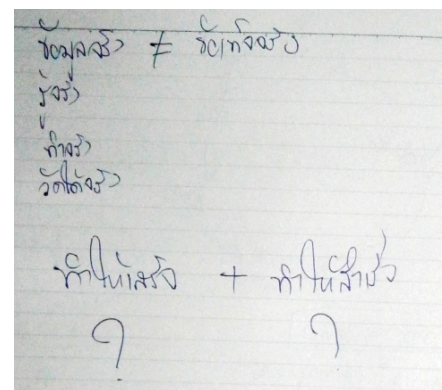 ข้อมูลจริง ≠ ข้อเท็จจริง
รู้จริง
ทำจริง
วัดได้จริง
ทำให้เสร็จ + ทำให้สำเร็จ
? ?